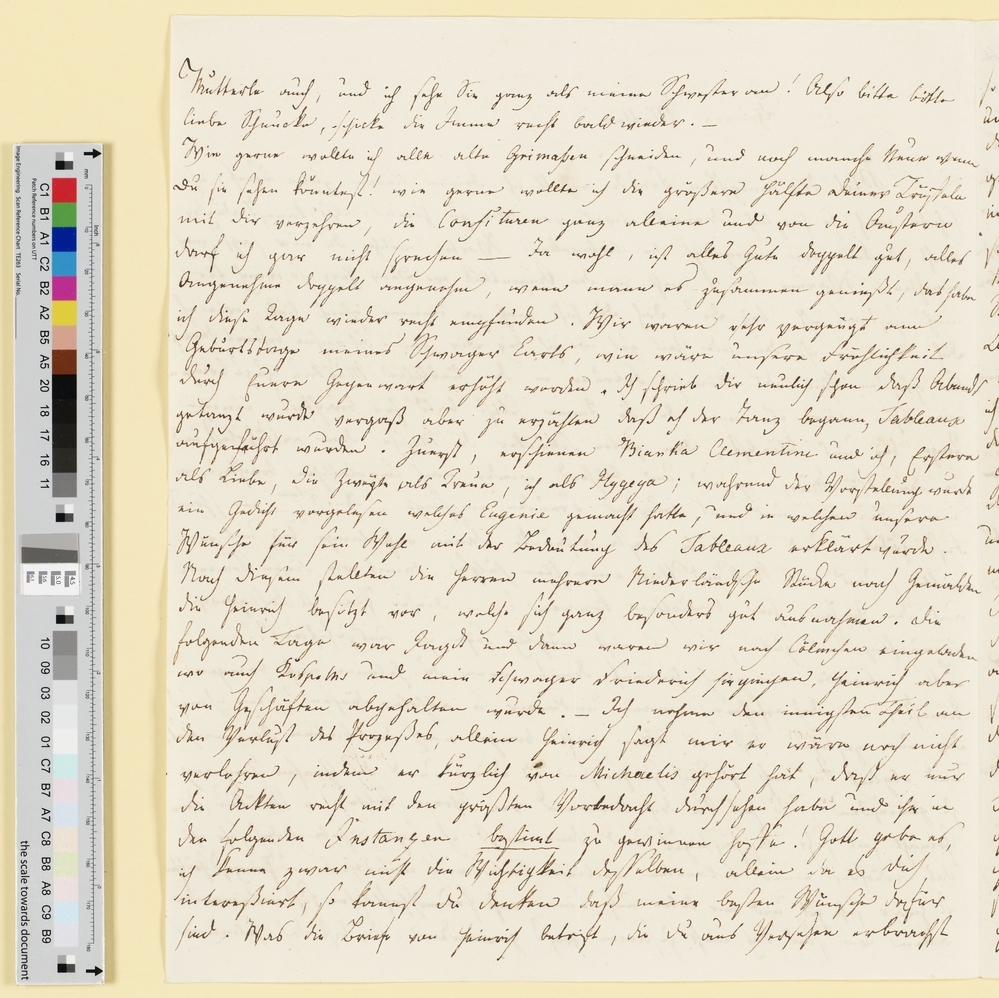 Mutterle auch, und ich sehe Sie ganz als meine Schwester an! Also bitte bitte
liebe Schnucke, schicke die Imme recht bald wieder. —
Wie gerne wollte ich alle alte Grimaßen schneiden, und noch manche Neue wenn
Du sie sehen könntest! wie gerne wollte ich die größere Hälfte Deiner Trüffeln
mit dir verzehren, die Confituren ganz alleine und von die Austern
darf ich gar nicht sprechen — Ja wohl, ist alles Gute doppelt gut, alles
Angenehme doppelt angenehm, wenn mann es zusammen genießt, das habe
ich diese Tage wieder recht empfunden. Wir waren sehr vergnügt am
Geburtstage meines Schwager Carls, wie wäre unsere Fröhlichkeit
durch Euere Gegenwart erhöht worden. Ich schrieb dir neulich schon daß Abends
getanzt wurde vergaß aber zu erzählen daß eh der Tanz begann, Tableaux
aufgeführt wurden. Zuerst, erschienen Bianka Clementine und ich, Erstere
als Liebe, die Zweyte als Treue, ich als Hygeya; während der Vorstellung wurde
ein Gedicht vorgelesen welches Eugenie gemacht hatte, und in welchen unsere
Wünsche für sein Wohl mit der Bedeutung des Tableaux erklärt wurde.
Nach diesem stellten die Herren mehrere Niederländische Stücke nach Gemälden
die Heinrich besitzt vor, welche sich ganz besonders gut ausnahmen. Die
folgenden Tage war Jagdt und dann waren wir nach Cölmchen eingeladen
wo auch und mein Schwager Friederich hingingen, Heinrich aber
von Geschäften abgehalten wurde. — Ich nehme den innigsten Theil an
den Verlust des Prozeßes, allein Heinrich sagt mir er wäre noch nicht
verlohren, indem er kürzlich von Michaelis gehört hat, daß er nur
die Ackten recht mit den größten Vorbedacht durchsehen habe und ihn in
den folgenden Instanzen bestimt zu gewinnen hoffe! Gott gebe es,
ich kenne zwar nicht die Wichtigkeit desselben, allein da es Dich
interessiert, so kannst du denken daß meine besten Wünsche dafür
sind. Was die Briefe von Heinrich betrift, die du aus Versehen erbrachst
the scale towards document
Image Engineering Scan Reference Chart TE263 Serial No.
Patch Reference numbers on UTT
C1 B1 A1 C2 B2 A2 B5 A5 20 18 17 16 11
10 09 03 02 01 C7 B7 A7 C8 B8 A8 C9 B9